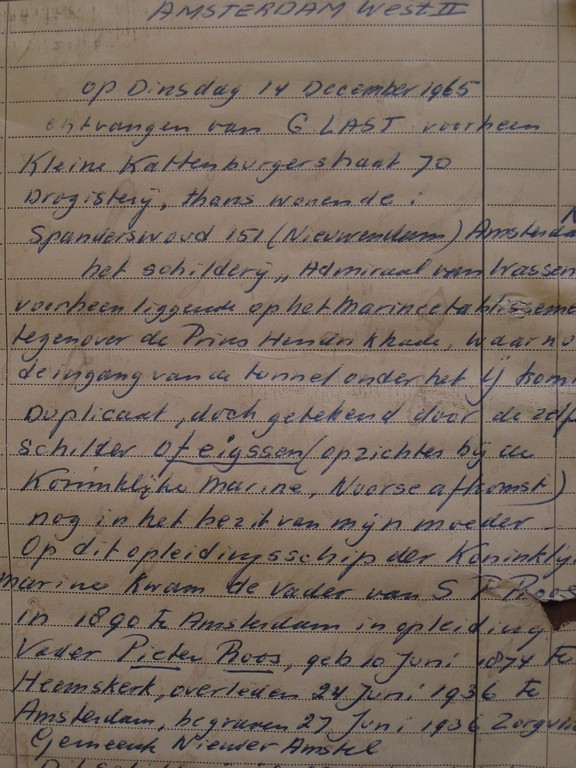 AMSTERDAM West II
op Dinsdag 14 December 1965
ontvangen van G LAST voorheen
Kleine Kattenburgerstraat 70
Drogisterij, thans wonende:
Spanderswoud 151 (Nieuwendam) Amsterda
het schilderij „Admiraal van Wassen
voorheen liggende op het Marineetablisseme
tegenover de Prins Hendrikkade, waar nu
de ingang van de tunnel onder het IJ komt
Duplicaat, doch getekend door de zelf
schilder Ofeigssen (opzichter bij de
Koninklijke Marine, Noorse afkomst)
nog in het bezit van mijn moeder.
Op dit opleidingsschip der Koninklij
Marine kwam de vader van S P Roos
in 1890 te Amsterdam in opleiding
Vader Pieter Roos, geb 10 Juni 1874 te
Heemskerk, overleden 24 Juni 1936 te
Amsterdam, begraven 27 Juni 1936 Zorgvli
Gemeente Nieuwer Amstel